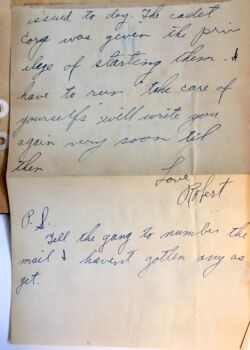 issued to day. The cadet
Corp was given the priv
ilage of starting them. I
have to run take care of
yourselfs will write you
again very soon til
then
Love
Robert
P.S.
Tell the gang to number the
mail I havent gotten any as
yet.